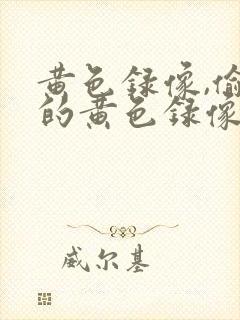 黄色録像,偷
的黄色録像
威尔基